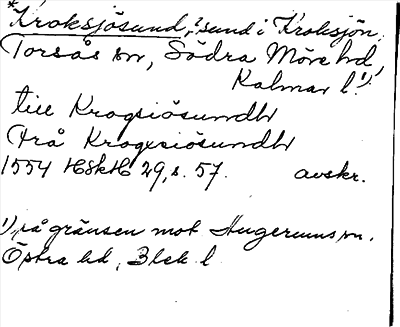 *Kroksjösund, ? sund i Kroksjön,
Torsås sn, Södra Möre hd,
Kalmar l. 1)
till Krogsiösundh
frå Krogxsiösundh
1554 HSkH 29, s. 57. avskr.
1) på gränsen mot Hugerums sn.
Östra hd, Blek. l